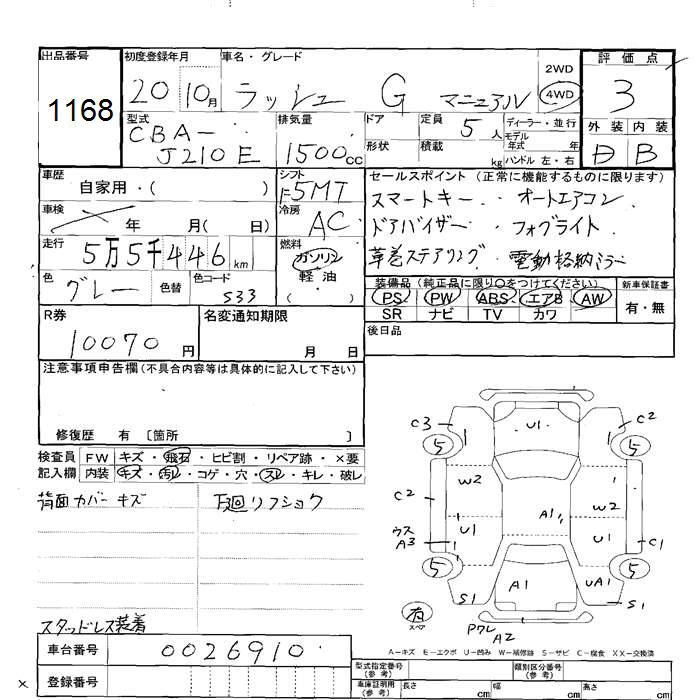 出品番号
1168
初度登録年月
20 10月
車名・グレード
ラッシュ G マニュアル
2WD
4WD
評価点
3
外装 内装
D B
型式
CBA-
J210E
排気量
1500cc
ドア
定員
5人
ディーラー・並行
モデル
年式 年
形状
積載
kg
ハンドル 左・右
車歴
自家用・( )
シフト
F5MT
車検
年 月( 日)
冷房
AC
走行
5万5千446km
燃料
ガソリン
軽油
( )
色
グレー
色替
色コード
S33
セールスポイント (正常に機能するものに限ります)
スマートキー・オートエアコン
ドアバイザー・フォグライト
革巻ステアリング・電動格納ミラー
装備品(純正品に限り○をつけてください)
PS PW ABS エアB AW
SR ナビ TV カワ
新車保証書
有・無
後日品
R券
10070円
名変通知期限
月 日
注意事項申告欄(不具合内容等は具体的に記入して下さい)
修復歴 有 〔箇所 〕
検査員
記入欄
FW キズ・飛石・ヒビ割・リペア跡・×要
内装 キズ・汚レ・コゲ・穴・スレ・キレ・破レ
背面カバーキズ
下廻リフショク
スタッドレス装着
車台番号
0026910
登録番号
×
C3 U1 C2
5 5
W2
C2 W2
A1
ウス
A3
U1 U1
C1
5 5
A1 UA1
S1 S1
有
スペア
PクレA2
A-キズ E-エクボ U-凹み W-補修跡 S-サビ C-腐食 XX-交換済
型式指定番号
(参考)
類別区分番号
(参考)
車庫証明用
(参考)
長さ cm
幅 cm
高さ cm